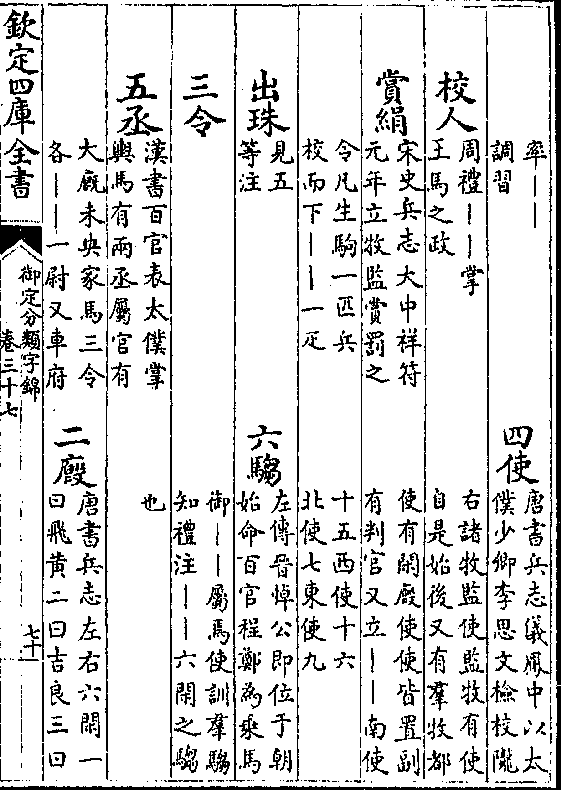 率｜｜
調習
校人
周禮｜｜掌
王馬之政
賞絹
宋史兵志大中祥符
元年立牧監賞罰之
令凡生駒一匹兵
校而下｜｜一疋
出珠
見五
等注
三令
五丞
漢書百官表太僕掌
輿馬有兩丞屬官有
大廏未央家馬三令
各｜｜一尉又車府
四使
唐書兵志儀鳳中以太
僕少卿李思文檢校隴
右諸牧監使監牧有使
自是始後又有羣牧都
使有閑廏使使皆置副
有判官又立｜｜南使
十五西使十六
北使七東使九
六騶
左傳晉悼公即位于朝
始命百官程鄭為乗馬
御｜｜屬馬使訓羣騶
知禮注｜｜六閑之騶
也
二廏
唐書兵志左右六閑一
曰飛黄二曰吉良三曰
欽定四庫全書
御定分類字錦
卷三十七
七十